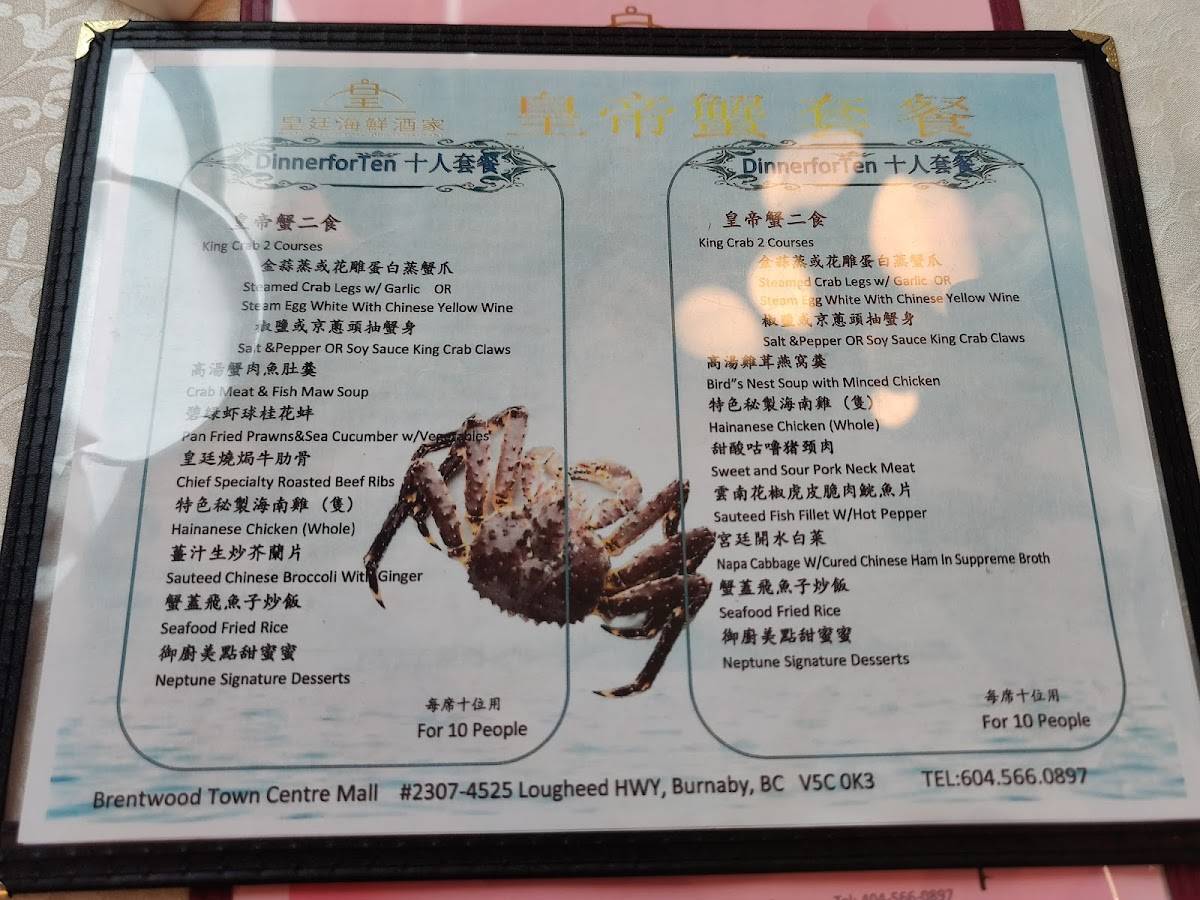 皇
皇廷海鮮酒家
皇帝蟹套餐
DinnerforTen 十人套餐
皇帝蟹二食
King Crab 2 Courses
金蒜蒸或花雕蛋白蒸蟹爪
Steamed Crab Legs w/ Garlic OR
Steam Egg White With Chinese Yellow Wine
椒鹽或京蔥頭抽蟹身
Salt &Pepper OR Soy Sauce King Crab Claws
高湯蟹肉魚肚羹
Crab Meat & Fish Maw Soup
碧綠虾球桂花蚌
Pan Fried Prawns&Sea Cucumber w/Vegetables
皇廷燒焗牛肋骨
Chief Specialty Roasted Beef Ribs
特色秘製海南雞（隻）
Hainanese Chicken (Whole)
薑汁生炒芥蘭片
Sauteed Chinese Broccoli With Ginger
蟹蓋飛魚子炒飯
Seafood Fried Rice
御廚美點甜蜜蜜
Neptune Signature Desserts
每席十位用
For 10 People
DinnerforTen 十人套餐
皇帝蟹二食
King Crab 2 Courses
金蒜蒸或花雕蛋白蒸蟹爪
Steamed Crab Legs w/ Garlic OR
Steam Egg White With Chinese Yellow Wine
椒鹽或京蔥頭抽蟹身
Salt &Pepper OR Soy Sauce King Crab Claws
高湯雞茸燕窩羹
Bird"s Nest Soup with Minced Chicken
特色秘製海南雞（隻）
Hainanese Chicken (Whole)
甜酸咕嚕猪頸肉
Sweet and Sour Pork Neck Meat
雲南花椒虎皮脆肉鯇魚片
Sauteed Fish Fillet W/Hot Pepper
宮廷開水白菜
Napa Cabbage W/Cured Chinese Ham In Suppreme Broth
蟹蓋飛魚子炒飯
Seafood Fried Rice
御廚美點甜蜜蜜
Neptune Signature Desserts
每席十位用
For 10 People
Brentwood Town Centre Mall #2307-4525 Lougheed HWY, Burnaby, BC V5C 0K3 TEL:604.566.0897